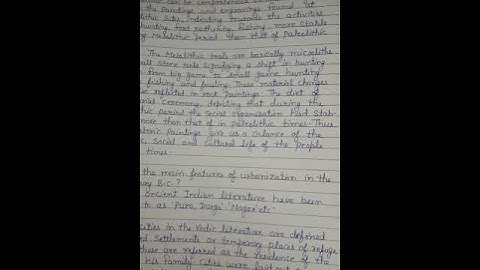 can be comprehended
the paintings and engravings found at
lithic sites, indicating towards the activities
hunting, food gathering, fishing, more stable
Mesolithic Period than that of Paleolithic
The Mesolithic tools are basically microliths
all stone tools signifying a shift in hunting
from big game to small game hunting
fishing and fowling. These material changes
reflected in rock paintings. The diet of
ceremony, depicting that during the
thic period the social organisation had stab-
more than that of in paleolithic times. Thus
Paintings give us a glance of the
social and cultural life of the people
times.
the main features of urbanization in the
B.C.?
ancient Indian literature have been
to as 'Pura, Durga' 'Nagar' etc.
cities in the Vedic literature are defined
settlements or temporary places of refuge
these are referred as the residence of the
his family. Cities were